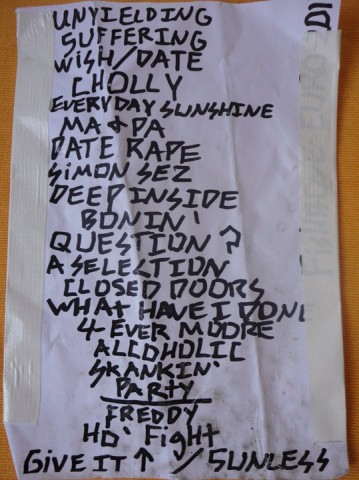 UNYIELDING
SUFFERING
WISH/DATE
CHOLLY
EVERYDAY SUNSHINE
MA & PA
DATE RAPE
SIMON SEZ
DEEP INSIDE
BONIN'
QUESTION?
A SELECTION
CLOSED DOORS
WHAT HAVE I DONE
4-EVER MOORE
ALCOHOLIC
SKANKIN'
PARTY
FREDDY
HO' FIGHT
GIVE IT ↑ / SUNLESS